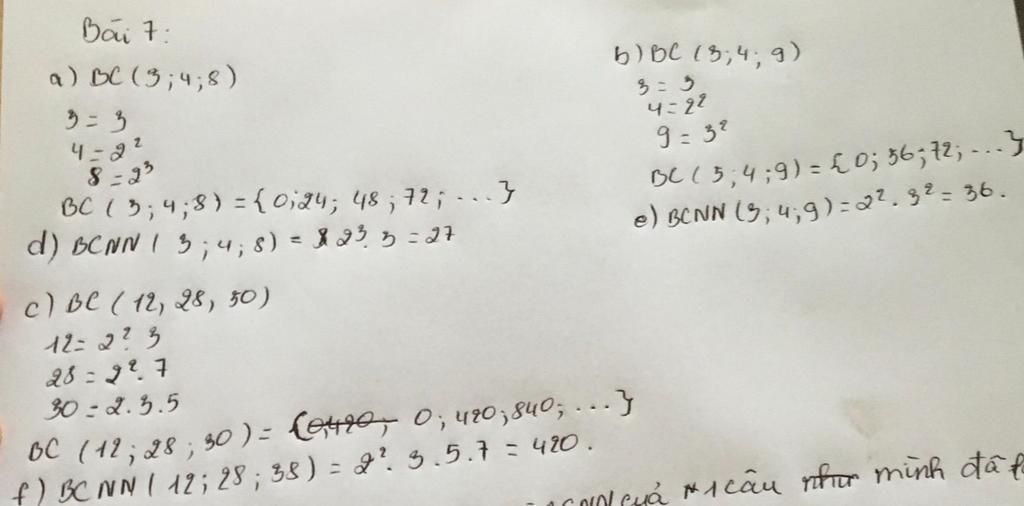 Bài 7:
a) BC (3;4;8)
3 = 3
4 = 2²
8 = 2³
BC (3;4;8) = {0;24; 48;72; ...}
d) BCNN (3;4;8) = 2³. 3 = 27
b) BC (3;4; 9)
3 = 3
4 = 2²
9 = 3²
BC (3;4;9) = {0; 36;72; ...}
e) BCNN (3;4;9) = 2². 3² = 36.
c) BC (12, 28, 30)
12 = 2². 3
28 = 2². 7
30 = 2.3.5
BC (12;28;30) = {0;420; 0;420;840; ...}
f) BCNN (12;28;38) = 2². 3.5.7 = 420.
1 câu như mình đã